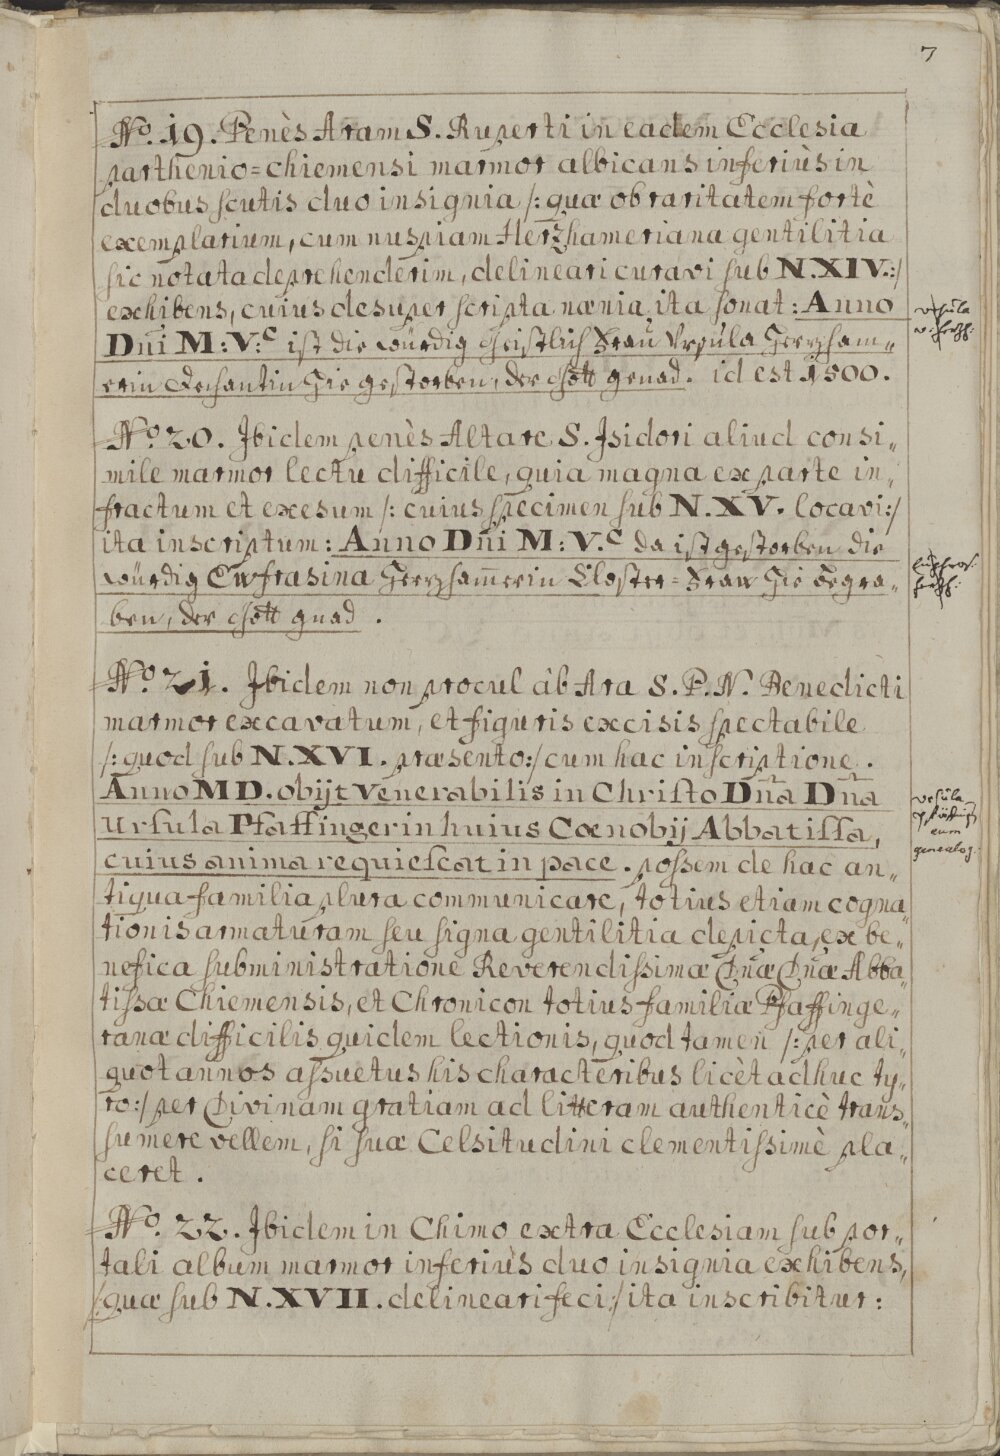 7
No. 19. Penès Aram S. Ruperti in eadem Ecclesia
parthenio=chiemensi marmor albicans inferiùs in
duobus scutis duo insignia /: quæ ob raritatem fortè
exemplarium, cum nuspiam Herzhameriana gentilitia
sic notata deprehenderim, delineari curavi sub N. XIV.:/
exhibens, cuius desuper scripta nænia ita sonat: Anno
Dn̄i M: V.c ist die würdig Geistlich Frau Vrsula Herzham„
erin Dechantin Hie gestorben, der Gott genad. id est 1500.
No. 20. Ibidem penès Altare S. Isidori aliud consi„
mile marmor lectu difficile, quia magna ex parte in„
fractum et exesum /: cuius specimen sub N. XV. locavi:/
ita inscriptum: Anno Dn̄i M: V.c da ist gestorben die
würdig Ewfrasina Herzham̄erin Closter=Fraw Hie Begra„
ben, der Gott gnad.
No. 21. Ibidem non procul àb Ara S. P. N. Benedicti
marmor excavatum, et figuris excisis spectabile
/: quod sub N. XVI. præsento:/ cum hac inscriptione.
Anno MD. obijt Venerabilis in Christo Dn̄a Dn̄a
Ursula Pfaffingerin huius Cœnobij Abbatissa,
cuius anima requiescat in pace. possem de hac an„
tiqua familia plura communicare, totius etiam cogna„
tionis armaturam seu signa gentilitia depicta, ex be„
nefica subministratione Reverendissimæ Dn̄æ Dn̄æ Abba„
tissæ Chiemensis, et Chronicon totius familiæ Pfaffinge„
ranæ difficilis quidem lectionis, quod tamen /: per ali„
quot annos assuetus his characteribus licèt adhuc ty„
ro:/ per Divinam gratiam ad litteram authenticè trans„
sumere vellem, si suæ Celsitudini clementissimè pla„
ceret.
No. 22. Ibidem in Chimo extra Ecclesiam sub por„
tali album marmor inferiùs duo insignia exhibens,
/: quæ sub N. XVII. delineari feci:/ ita inscribitur:
Vrsula
v. Herzh:
Euphros:
Herzh:
Vrsula
Pfäffing
cum
genealog: